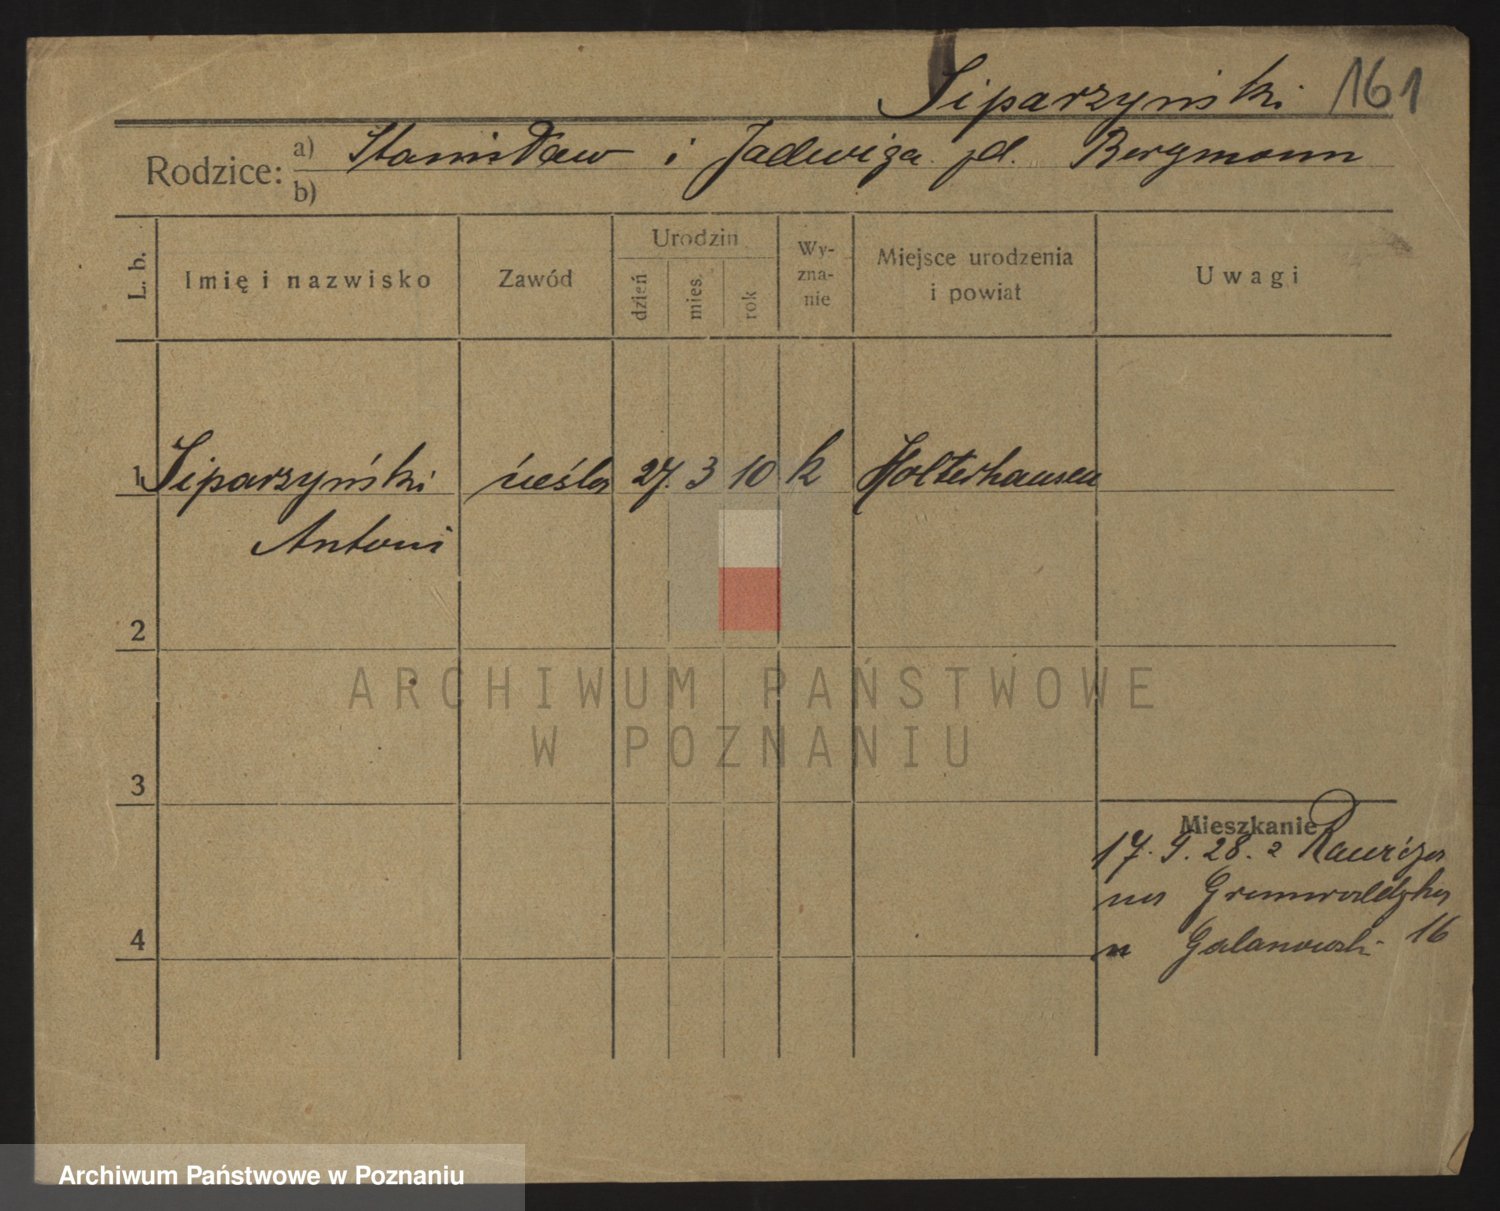 Siparzyński 161
Rodzice: a) Stanisław i Jadwiga zd. Bergmann
b)
L. b.
Imię i nazwisko
Zawód
Urodzin
dzień
mies.
rok
Wy-
zna-
nie
Miejsce urodzenia
i powiat
Uwagi
1 Siparzyński cieśla 27. 3 10 k Holterhausen
Antoni
2
3
Mieszkanie
17. 9. 28. z Rawicza
na Grunwaldzka
4
u Galanowski 16
ARCHIWUM PAŃSTWOWE
W POZNANIU
Archiwum Państwowe w Poznaniu